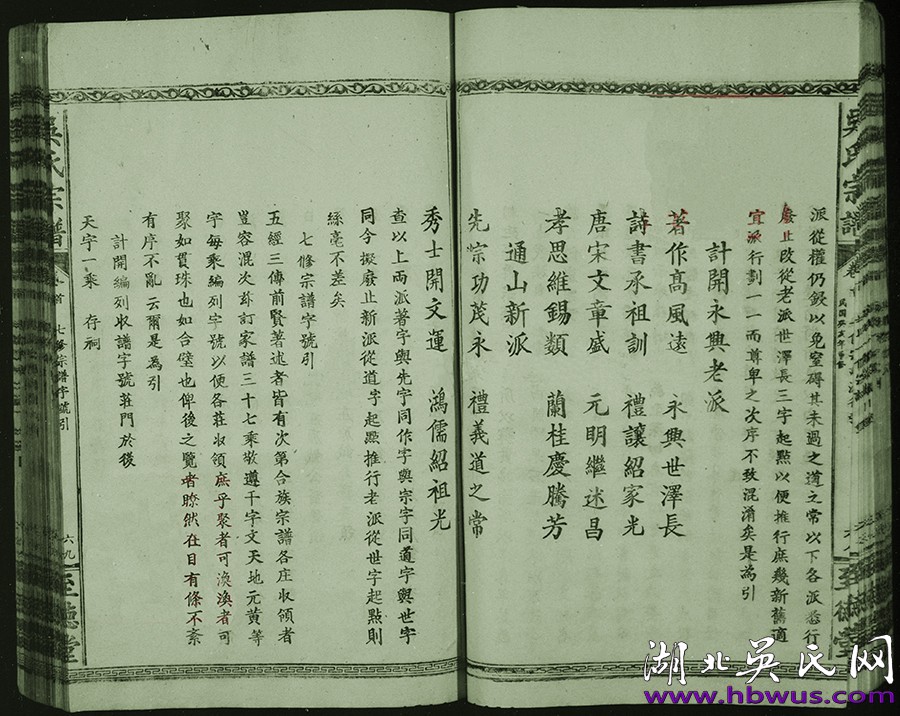 派從權仍錄以免窒碍其未過之道之常以下各派悉行
廢止改從老派世澤長三字起點以便推行庶幾新舊適
宜派行劃一一而尊卑之次序不致混淆矣是為引
計開永興老派
著作高風遠 永興世澤長
詩書承祖訓 禮讓紹家光
唐宋文章盛 元明繼述昌
孝思維錫類 蘭桂慶騰芳
通山新派
先宗功茂永 禮義道之常
秀士開文運 鴻儒紹祖光
查以上兩派著字與先字同作字與宗字同道字與世字
同今擬廢止新派從道字起點推行老派從世字起點則
絲毫不差矣
七修宗譜字號引
五經三傳前賢著述者皆有次第合族宗譜各庄收領者
豈容混次茲訂家譜三十七乘敬遵千字文天地元黃等
字每乘編列字號以便各莊收領庶乎聚者可渙渙者可
聚如貫珠也如合璧也俾後之覽者瞭然在目有條不紊
有序不亂云爾是為引
計開編列收譜字號莊門於後
天字一乘 存祠
吳氏宗譜
卷首
七修宗譜字號引
六九
至德堂
吳氏宗譜
至德堂
湖北吳氏网
www.hbwus.com